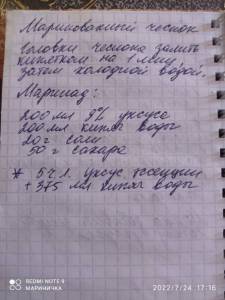 Маринованный чеснок
Головки чеснока залить
кипятком на 1 мин,
затем холодной водой.
Маринад:
200 мл 9% уксуса
200 мл кипяч воды
20 г соли
50 г сахара
* 5 ч л уксус эссенции
+ 375 мл кипяч воды
REDMI NOTE 9
МАРИНИЧКА
2022/7/24 17:16